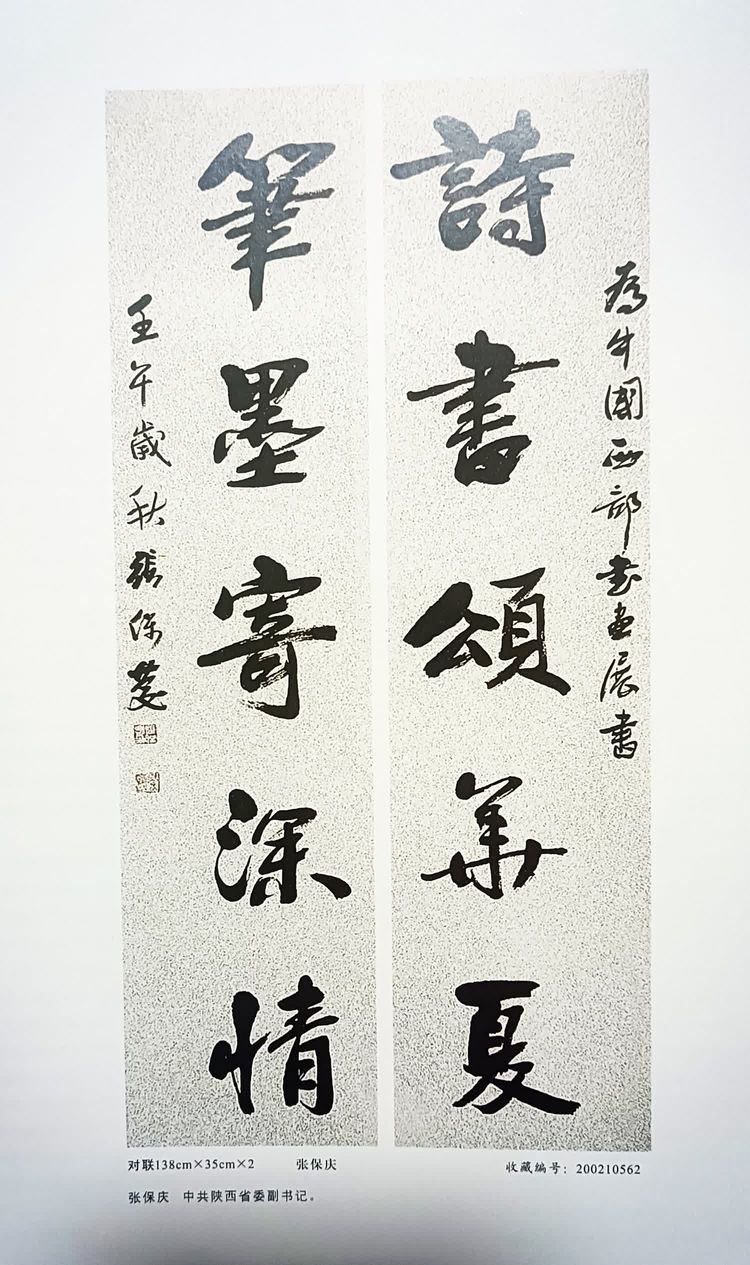 为中國西部书画展書
詩書頌華夏
筆墨寄深情
壬午歲秋張保慶
对联138cm×35cm×2 张保庆 收藏编号：200210562
张保庆 中共陕西省委副书记。